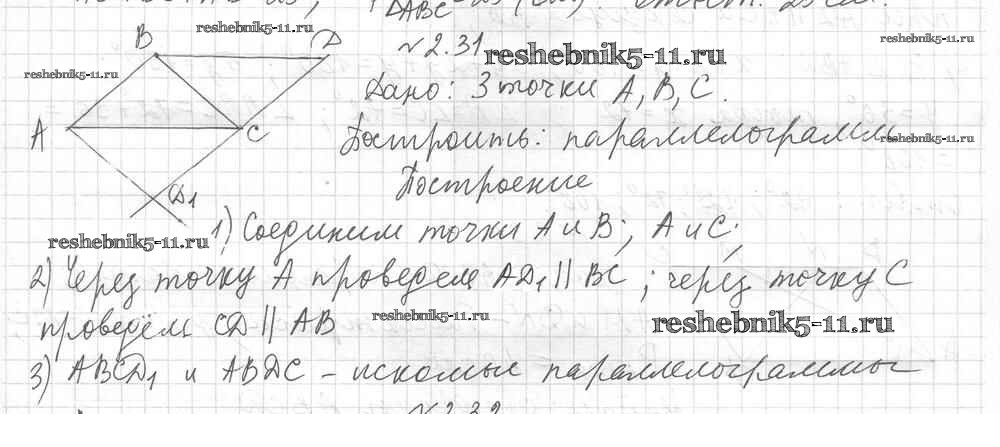 △ABC
reshebnik5-11.ru
B
D
№2.31
reshebnik5-11.ru
reshebnik5-11.ru
reshebnik5-11.ru
Дано: 3 точки A, B, C.
A
C
Построить: параллелограммы
reshebnik5-11.ru
Построение
D1
reshebnik5-11.ru
1) Соединим точки A и B; A и C;
2) Через точку A проведем AD1 || BC; через точку C
проведём CD || AB
reshebnik5-11.ru
reshebnik5-11.ru
3) ABCD1 и ABDC – искомые параллелограммы
№2.32